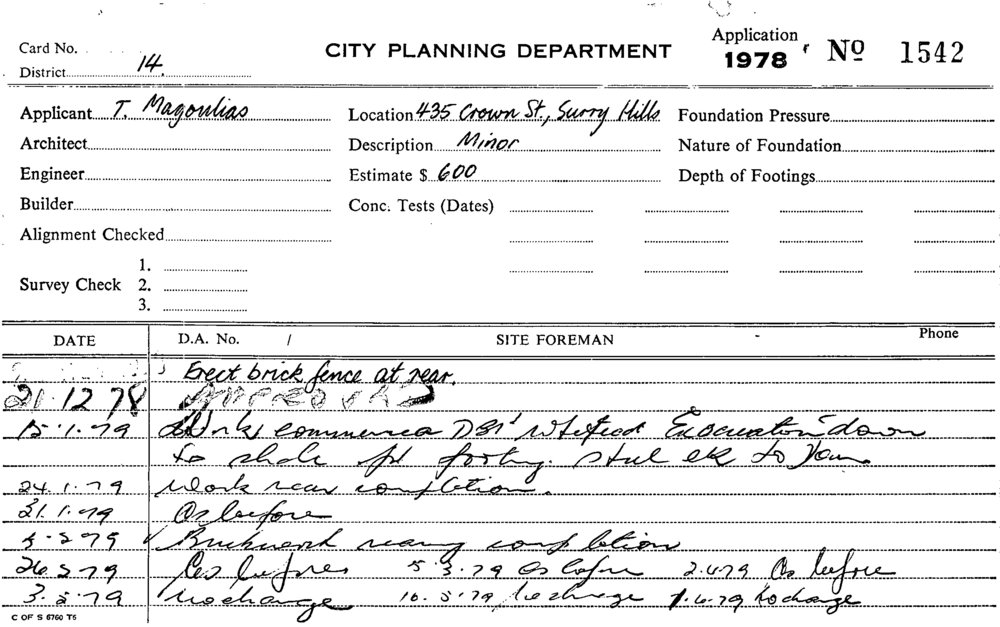 Card No.
CITY PLANNING DEPARTMENT
Application
1978
No 1542
District 14.
Applicant T. Magoulias
Location 435 Crown St., Surry Hills
Foundation Pressure
Architect
Description Minor
Nature of Foundation
Engineer
Estimate $ 600
Depth of Footings
Builder
Conc. Tests (Dates)
Alignment Checked
Survey Check
1.
2.
3.
DATE D.A. No. / SITE FOREMAN Phone
Erect brick fence at rear.
21.12 78 APPROVED
15.1.79 Work down
to footing. to
24.1.79 Work near completion.
31.1.79 As before
5.2.79 Brickwork nearing completion
26.2.79 As before 5.3.79 As before 2.4.79 As before
3.5.79 No change 10.5.79 No change 1.6.79 No change
C OF S 6760 T5